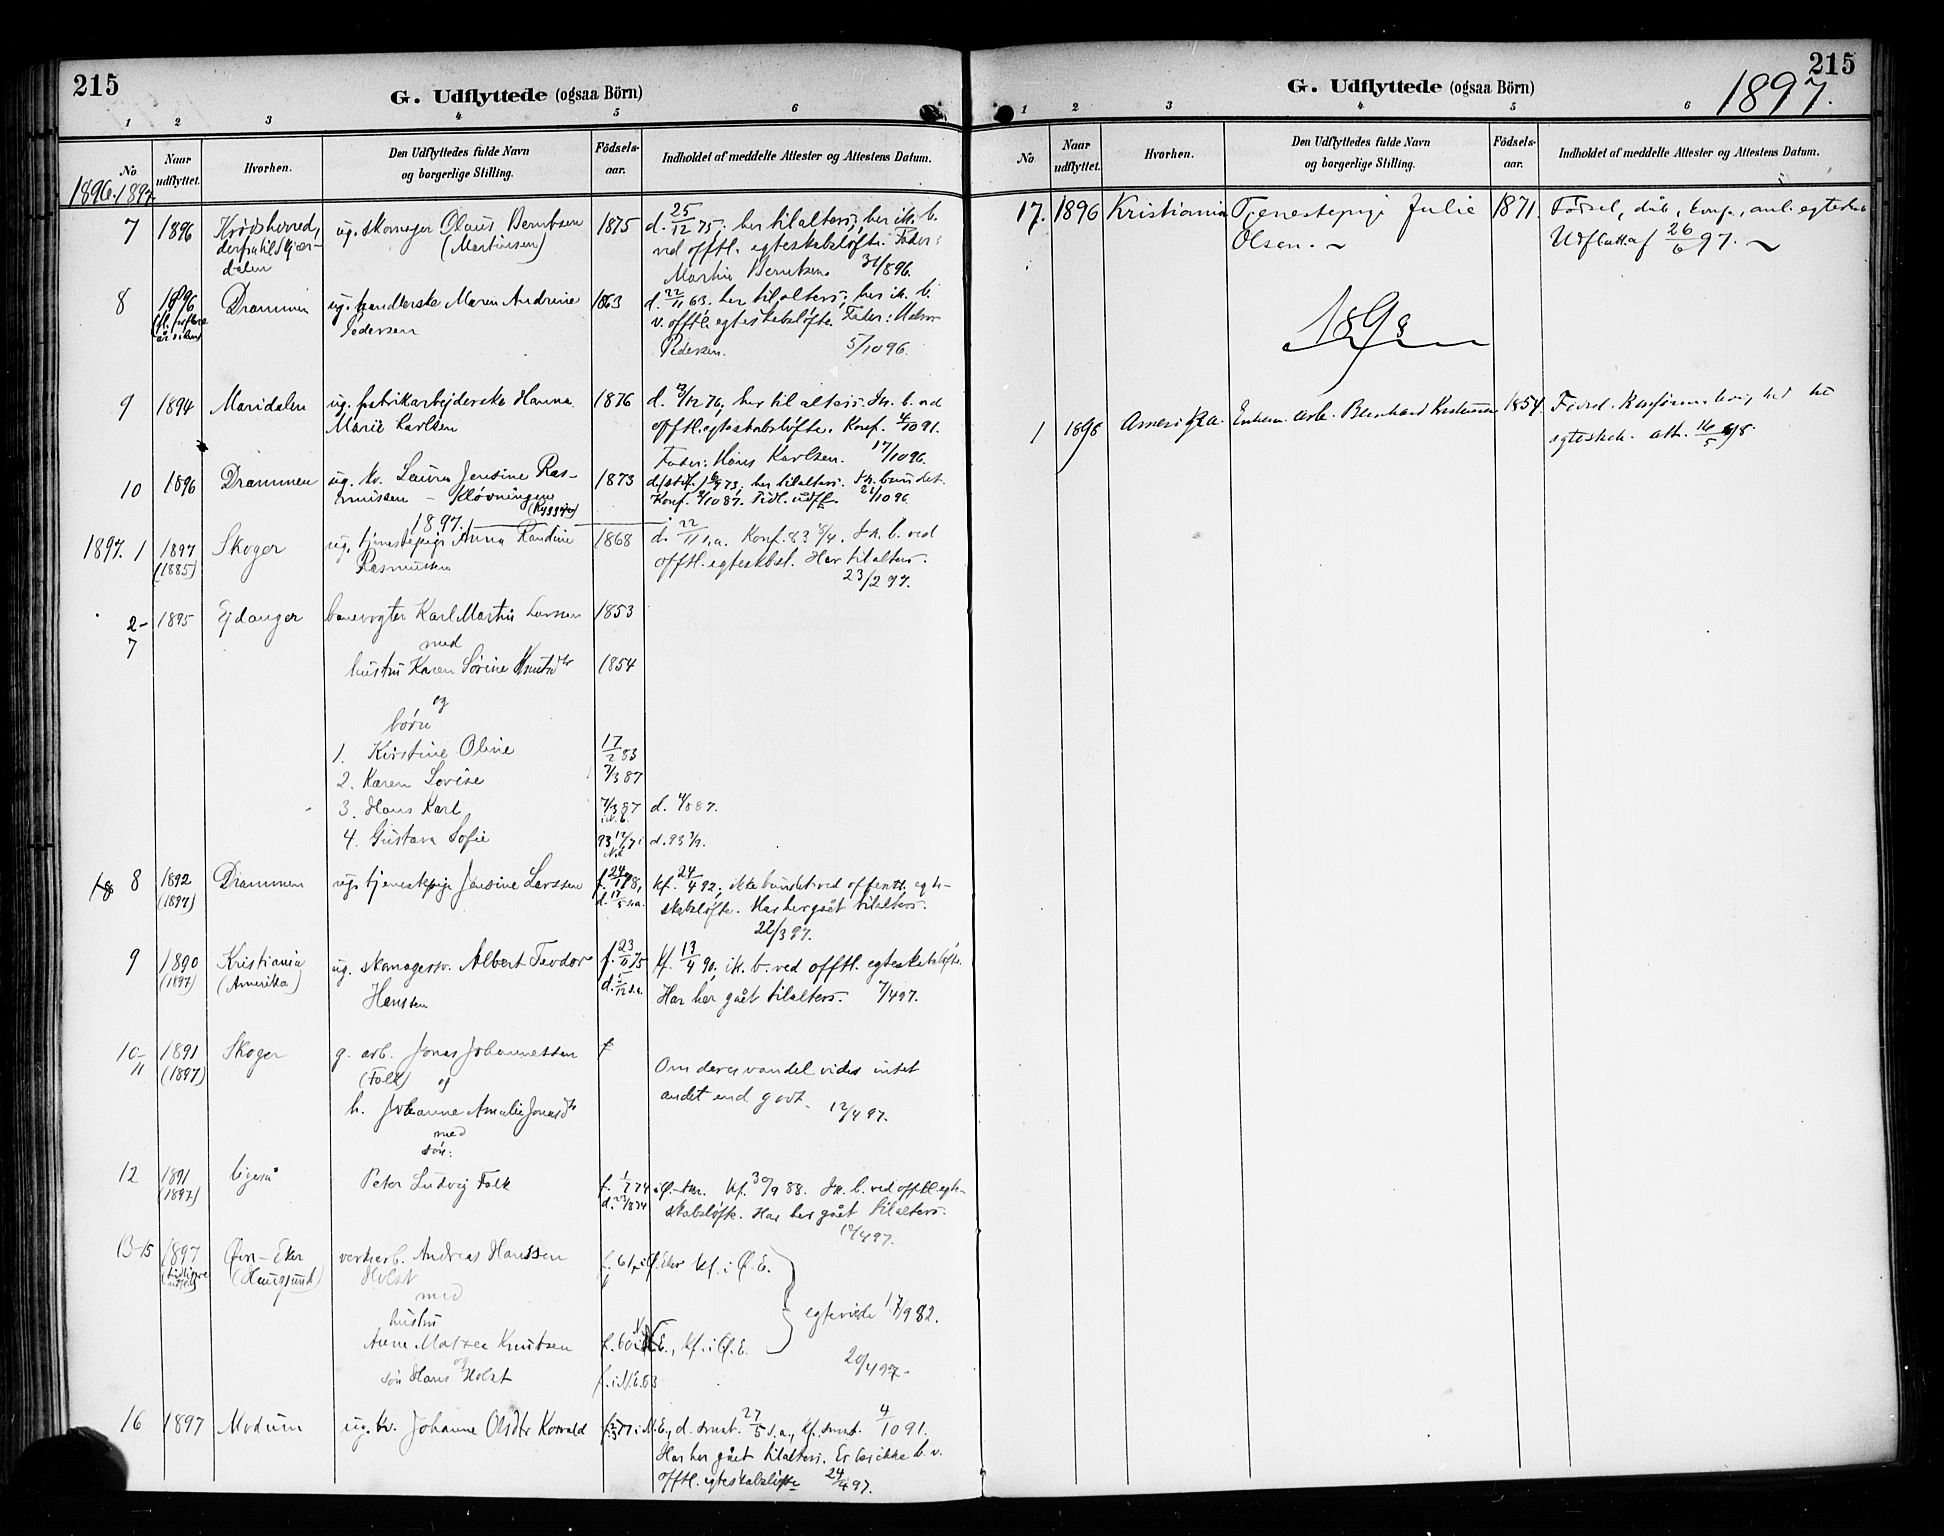 215
G. Udflyttede (ogsaa Börn)
1 2 3 4 5 6
No
Naar udflyttet.
Hvorhen.
Den Udflyttedes fulde Navn
og borgerlige Stilling.
Födsels-
aar.
Indholdet af meddelte Attester og Attestens Datum.
1896. 1897.
7 1896 Krødsherred, ug. skomager Olaus Berntsen 1875 d. 25/12 75; her tilalters; her ik. b.
derfra til
dalen (Martinsen) ved offtl. egteskabsløfte. Fader:
Martin Berntsen 31/8 96.
8 1896 Drammen ug. handlerske Maren Andrine 1863 d. 22/11 63. her tilalters; her ik. b.
Pedersen v. offtl. egteskabsløfte. Fader:
Pedersen. 5/10 96.
9 1894 Maridalen ug. fabrikarbejderske Hanna 1876 d. 3/12 76, her til alters. Ik. b. ved
Marie Karlsen offtl. egteskabsløfte. Konf. 4/10 91.
Fader: Hans Karlsen. 17/10 96.
10 1896 Drammen ug. kv. Laura Jensine Ras- 1873 her tilalters. Ik. bundet.
mussen – Kløvningen Konf. 87. Tidl. udfl. 21/10 96.
1897.
1897. 1 1897 Skoger ug. tjenestepige Anna Randine 1868 d. 22/11 s.a. Konf. 83 8/4. Ik. b. ved
(1885) Rasmussen offtl. egteskbsl. Har tilalters.
23/2 97.
2– 1895 Ejdanger banevogter Karl Martin Larsen 1853
7 med
hustru Karen Sørine Knutsdtr 1854
og
børn
1. Kirstine Oline 17/2 83
2. Karen Lovise 7/3 87
3. Hans Karl 7/3 87 d. 4/8 87.
4. Gustava Sofie 93 12/7 d. 93 3/9.
8 1892 Drammen ug. tjenestepige Jensine Larssen kf. 24/4 92; ikke bundet ved offentl. egte-
(1897) d. 17/5 s.a. skabsløfte. Har her gået tilalters.
22/3 97.
9 1890 Kristiania ug. skomagersv. Albert Teodor f. 23/11 75 kf. 13/4 90, ik. b. ved offtl. egteskabsløfte.
(1897) (Amerika) Hanssen d. /12 s.a. Har her gået tilalters. 7/4 97.
10– 1891 Skoger g. arb. Jonas Johannessen f
11 (1897) (Falk) og Om deres vandel vides intet
h. Johanne Amalie Jonasdtr andet end godt. 12/4 97.
med
søn:
12 1891 ligeså Peter Ludvig Falk f. 1/7 74 kf. 30/9 88. Ik. b. ved offtl. egte-
(1897) d. 23/8 74 skabsløfte. Har her gået tilalters.
12/4 97.
13–15 1897 Øvre-Eker verksarb. Andreas Hanssen f. 61, i Ø. Eker kf. i Ø. E.
(Haugsund) Holst
med
hustru egteviede 17/9 82.
Anne Matea Knutsen f. 60 i N. E., kf. i Ø. E.
og 20/4 97.
søn Hans Holst f. i N. E. 83
16 1897 Modum ug. kv. Johanne Olsdtr Korvald f. 2/3 77 i N. E., d. smst. 27/5 s.a., kf. smst. 4/10 91.
Har her gået tilalters. Er her ikke b. v.
offtl. egteskabsløfte 24/4 97.
215
G. Udflyttede (ogsaa Börn)
1897.
1 2 3 4 5 6
No
Naar
udflyttet.
Hvorhen.
Den Udflyttedes fulde Navn
og borgerlige Stilling.
Födsels-
aar.
Indholdet af meddelte Attester og Attestens Datum.
17. 1896 Kristiania Tjenestepige Julie 1871. Fødsel, dåb, konf., anl. egteskab
Olsen. ~ Udfl. att. af 26/6 97. ~
1898
1 1898 Amerika. Enkem. arb. Bernhard Kristensen 1854. Fødsel, Konfirm.,
egteskab. att. 16/5 98